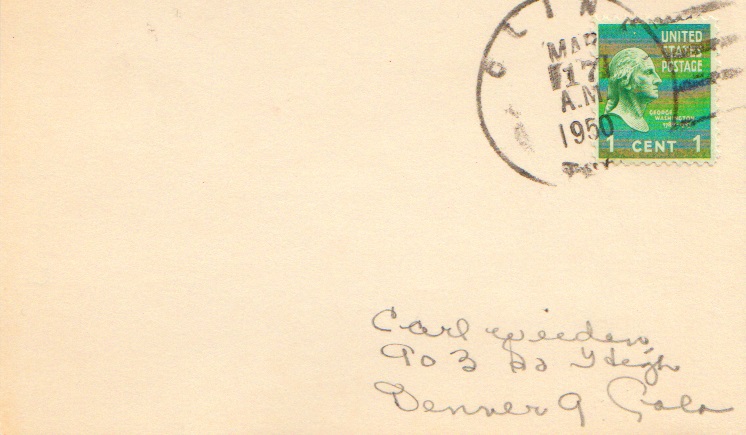 CLIN
MAR
17
A.M.
1950
UNITED
STATES
POSTAGE
GEORGE
WASHINGTON
1 CENT 1
Carl Weeden,
903 So High
Denver 9 Colo